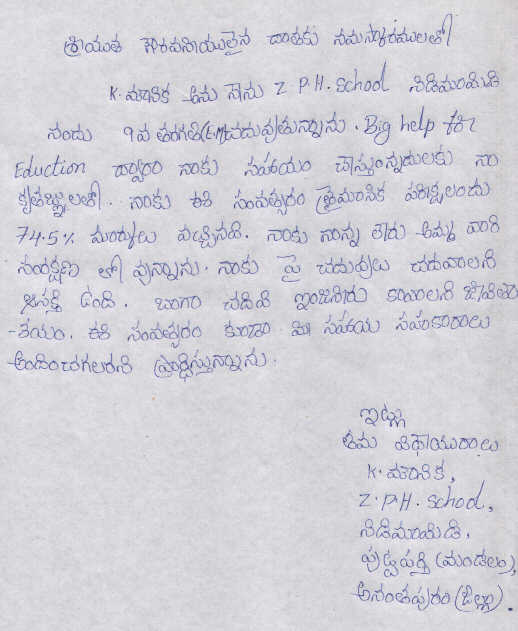 శ్రీయుత గౌరవనీయులైన దాతకు నమస్కారములతో
K. మౌనిక అను నేను Z P.H. School నిడిమామిడి
నందు 9వ తరగతి(E.M)చదువుతున్నాను. Big help for
Eduction ద్వారా నాకు సహాయం చేస్తున్నందులకు నా
కృతజ్ఞులతో. నాకు ఈ సంవత్సరం త్రైమాసిక పరీక్షలందు
74.5% మార్కులు వచ్చినవి. నాకు నాన్న లేరు అమ్మ వారి
సంరక్షణ లో వున్నాను. నాకు పై చదువులు చదవాలని
ఆసక్తి ఉంది. బాగా చదివి ఇంజనీరు కావాలని జీవితా
-శయం. ఈ సంవత్సరం కూడా మీ సహాయ సహకారాలు
అందించగలరని ప్రార్థిస్తున్నాను.
ఇట్లు
తమ విధేయురాలు
K. మౌనిక,
Z.P.H. School,
నిడిమామిడి,
పుట్టపర్తి (మండలం),
అనంతపురం (జిల్లా).